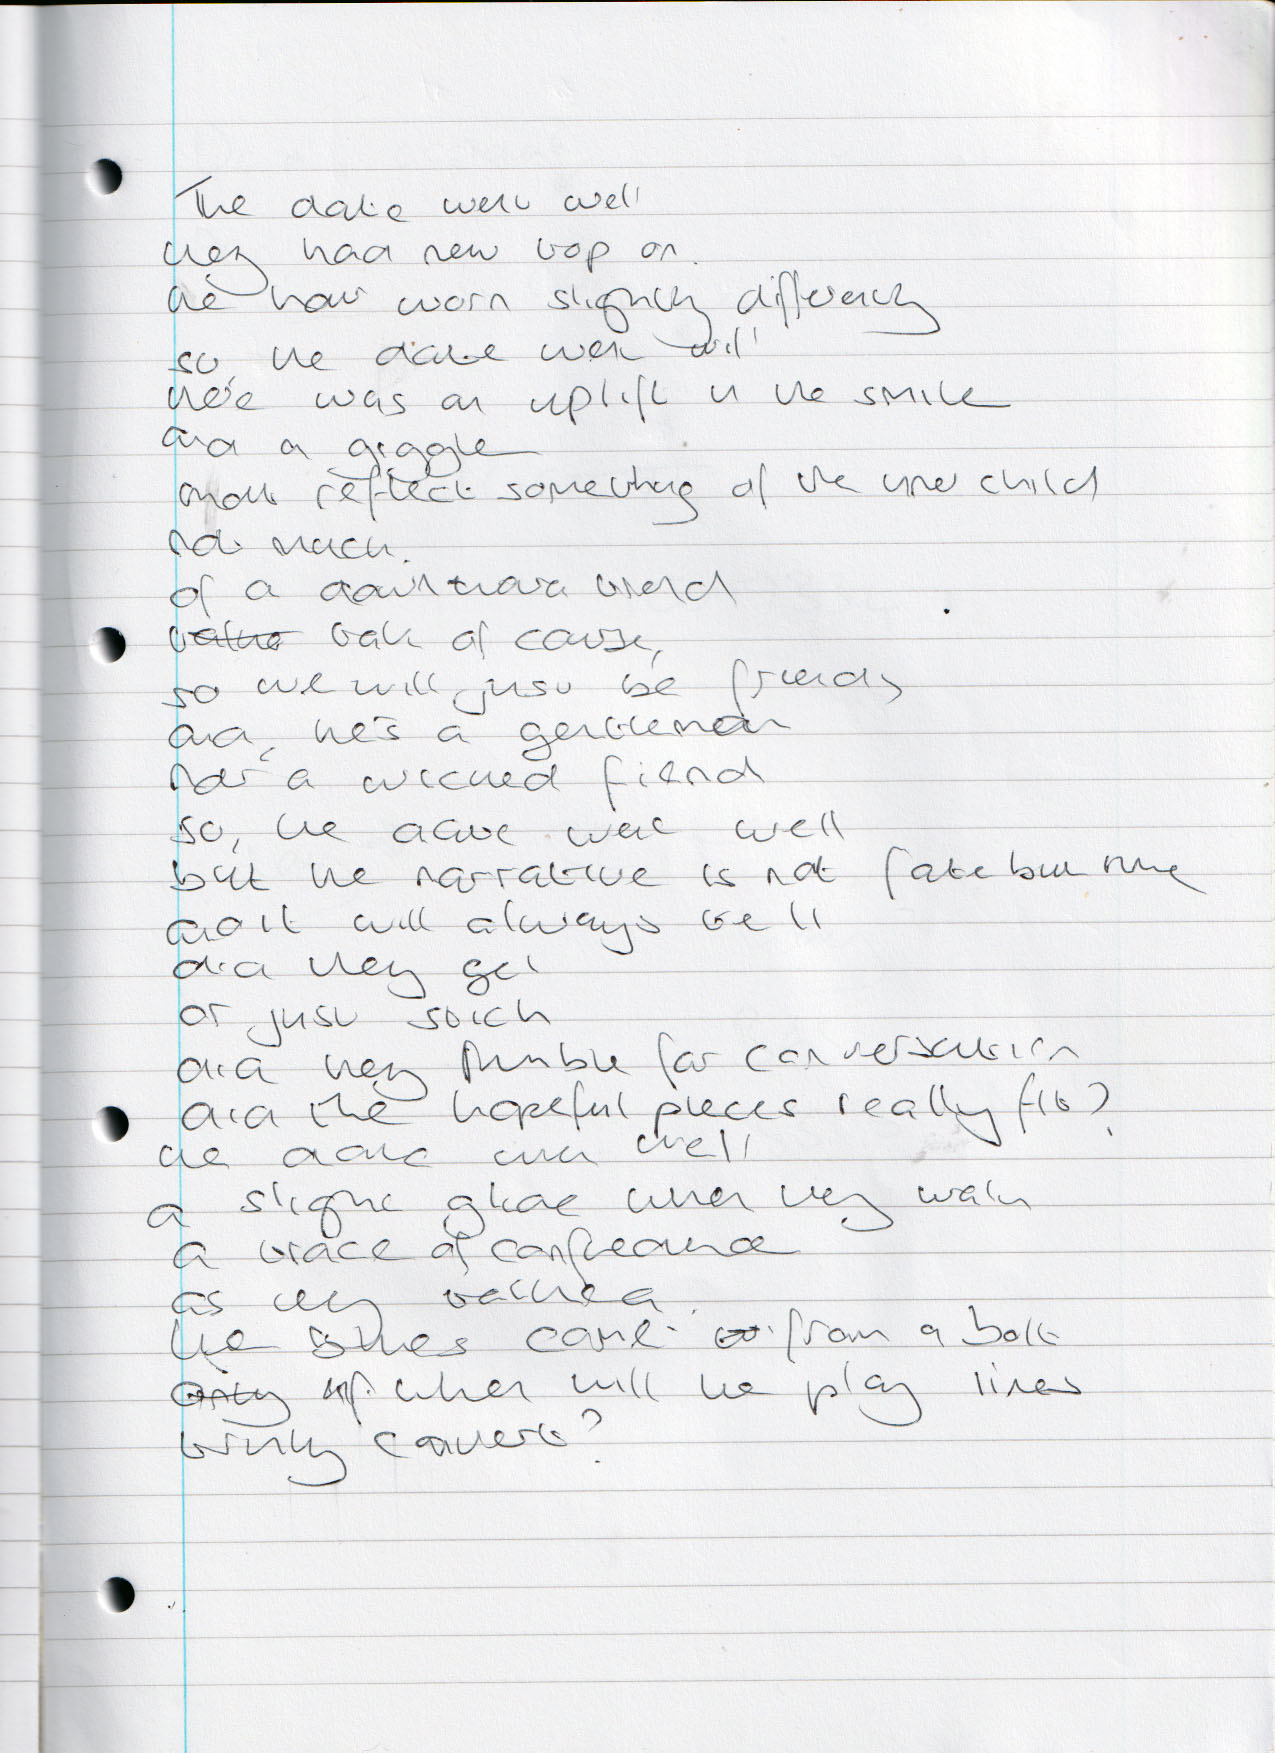 The date went well
they had new top on.
the hair worn slightly differently
so, the date went well
there was an uplift in the smile
and a giggle
that reflect something of the inner child
not much.
of a downtrend
talk of course,
so we will just be friends
and, he's a gentleman
not a wicked fiend
so, the date went well
but the narrative is not fate but time
and it will always tell
did they gel
or just stick
did they fumble for conversation
did the hopeful pieces really fit?
the date went well
a slight glide when they walk
a trace of confidence
as they talked.
the blues came from a bolt
of when will the play lines
truly convert?